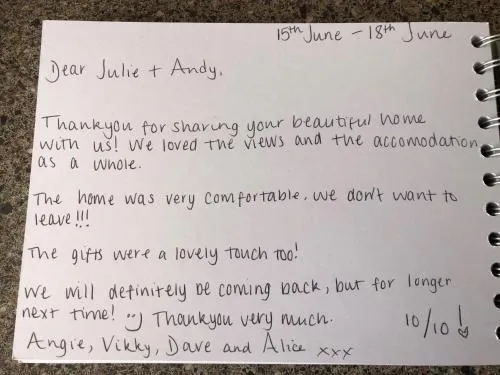 15th June - 18th June
Dear Julie + Andy,
Thankyou for sharing your beautiful home
with us! We loved the views and the accomodation
as a whole.
The home was very comfortable. We don't want to
leave!!!
The gifts were a lovely touch too!
We will definitely be coming back, but for longer
next time! :) Thankyou very much.
10/10!
Angie, Vikky, Dave and Alice xxx